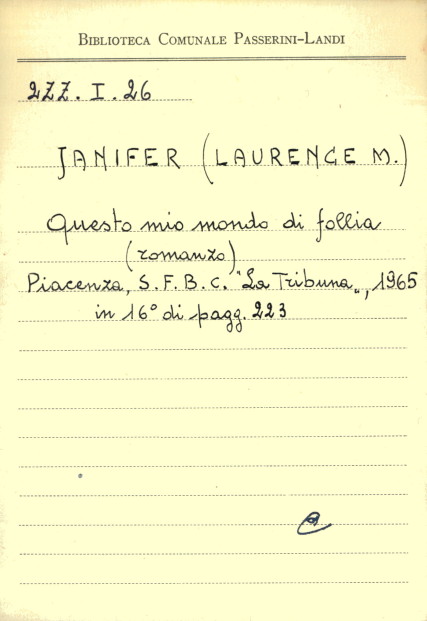 BIBLIOTECA COMUNALE PASSERINI-LANDI
2ZZ.I.26
JANIFER (LAURENCE M.)
Questo mio mondo di follia
(romanzo)
Piacenza, S.F.B.C. "La Tribuna„, 1965
in 16° di pagg. 223